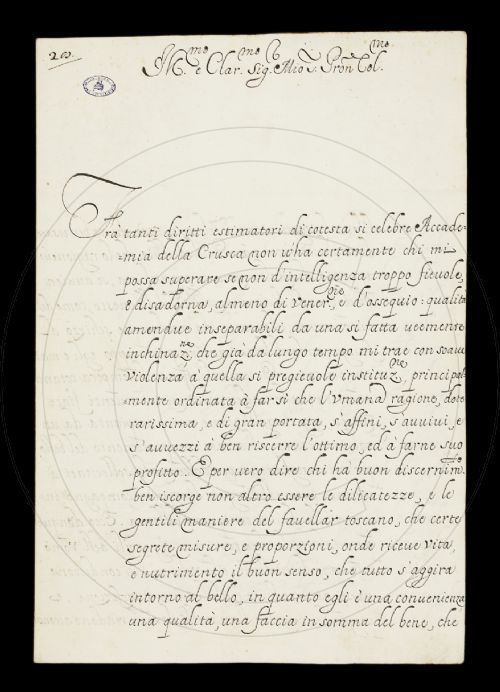 263.
Ill.mo e Clar.mo Sig. Mio e Pron Col.mo
Trà tanti diritti estimatori di cotesta sì celebre Accade=
=mia della Crusca non v'ha certamente chi mi
possa superare se non d'intelligenza troppo fievole,
e disadorna, almeno di vener.ne, e d'ossequio: qualità
amendue inseparabili da una sì fatta veemente
inchinaz.ne, che già da lungo tempo mi trae con soave
violenza à quella sì pregievole instituz.ne, principal=
=mente ordinata à far sì che l'Vmana ragione, dote
rarissima, e di gran portata, s'affini, s'avvivi, e
s'avvezzi à ben riscerre l'ottimo, ed à farne suo
profitto. E per vero dire chi ha buon discernim.to
ben iscorge non altro essere le dilicatezze, e le
gentili maniere del favellàr toscano, che certe
segrete misure, e proporzioni, onde riceve vita,
e nutrimento il buon senso, che tutto s'aggira
intorno al bello, in quanto egli è una convenienza
una qualità, una faccia in somma del bene, che